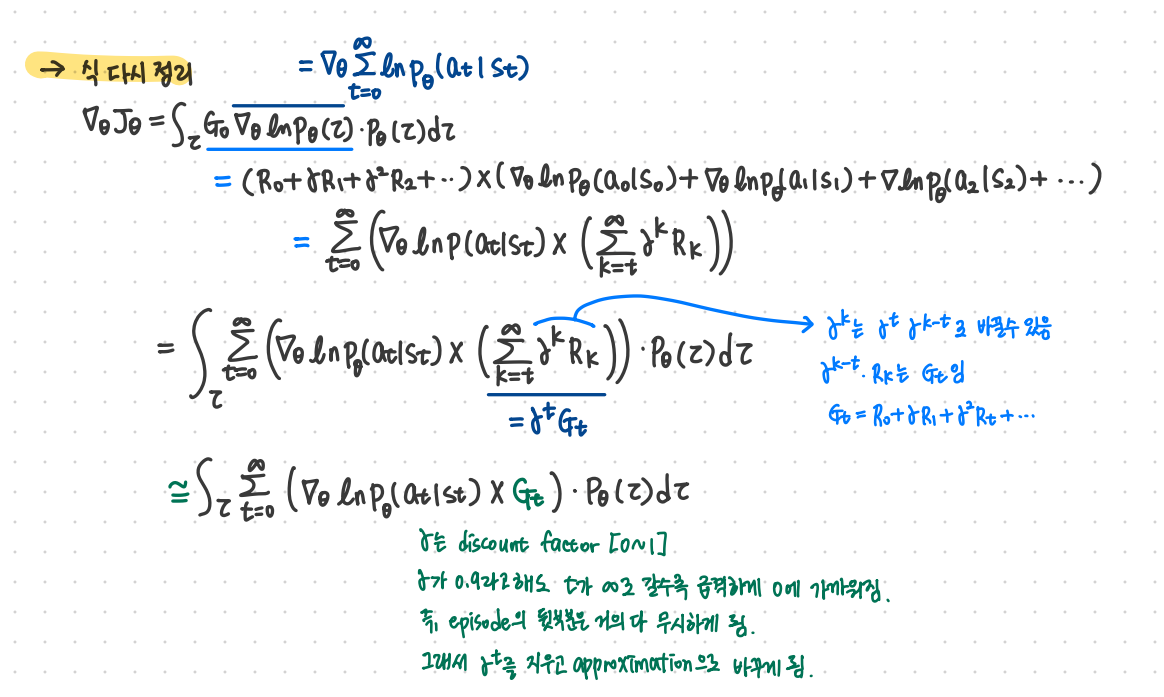 → 식 다시 정리
= ∇θ ∑_{t=0}^{∞} ln pθ(at|St)
∇θJθ = ∫τ G₀ ∇θ ln Pθ(τ) · Pθ(τ)dτ
= (R₀+γR₁+γ²R₂+··) × (∇θ ln Pθ(a₀|S₀)+∇θ ln pθ(a₁|S₁)+∇ln pθ(a₂|S₂)+ ···)
= ∑_{t=0}^{∞} (∇θ ln p(at|st) × (∑_{k=t}^{∞} γ^k R_k))
= ∫τ ∑_{t=0}^{∞} (∇θ ln pθ(at|st) × (∑_{k=t}^{∞} γ^k R_k)) · Pθ(τ)dτ
= γ^t Gt
γ^k는 γ^t γ^{k-t}로 바꿀수 있음
γ^{k-t}·R_k는 Gt임
Gt = R₀+γR₁+γ²Rt+···
≅ ∫τ ∑_{t=0}^{∞} (∇θ ln pθ(at|st) × Gt) · Pθ(τ)dτ
γ는 discount factor [0~1]
γ가 0.9라고해도 t가 ∞로 갈수록 급격하게 0에 가까워짐.
즉, episode의 뒷부분은 거의 다 무시하게 됨.
그래서 γ^t를 지우고 approximation으로 바꾸게 됨.